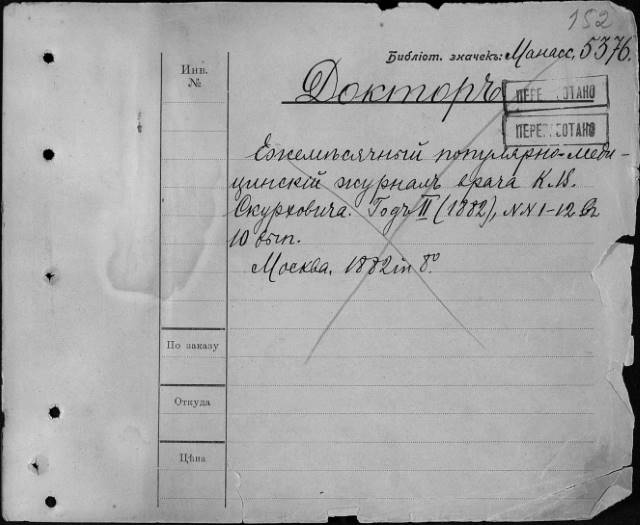 152
Библіот. значекъ: Манасс. 5376.
Инв.
№
Докторъ
ПЕРЕРАБОТАНО
ПЕРЕРАБОТАНО
Ежемѣсячный популярно-меди-
цинскій журналъ врача К.
Скурховича. Годъ II (1882), NN 1-12 въ
10 вып.
Москва. 1882 in 8º.
По заказу
Откуда
Цѣна